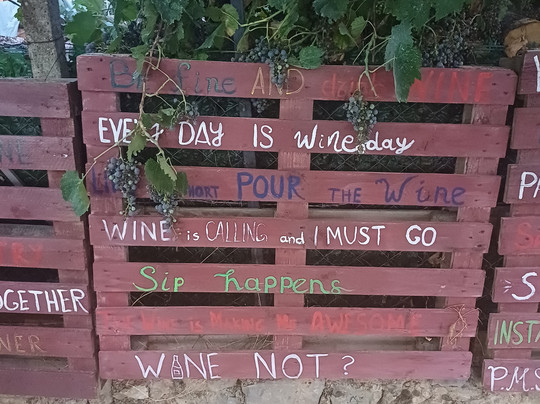 Be fine AND don't WINE
EVERY DAY IS Winesday
LIFE is SHORT POUR THE Wine
WINE is CALLING and I MUST GO
Sip happens
WINE is MAKING ME AWESOME
WINE NOT?
OGETHER
NER
PA
INSTA
P.M.S